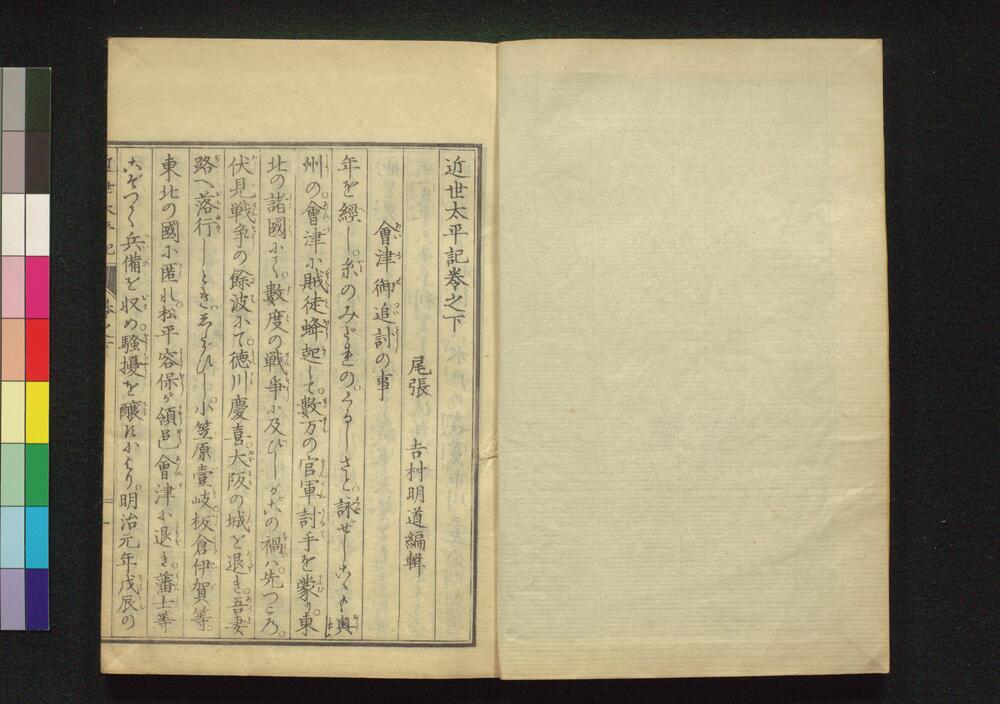 近世太平記巻之下
尾張 吉村明道編輯
會津御追討の事
年を經し。糸のみだれの。くるしさと。詠ぜし。こゝも奥
州の會津に賊徒蜂起して。數万の官軍討手を蒙り。東
北の諸國にて。數度の戦争に及びしが。其の禍ハ。先つころ。
伏見戦争の餘波にて。徳川慶喜。大阪の城を退き。吾妻
路へ落行しとき。したがひし。小笠原壹岐。板倉伊賀等。
東北の國に匿れ。松平容保が領邑會津に退き。藩士等
兵備を収め。騒擾を醸すにより。明治元年戊辰の
近世太平記